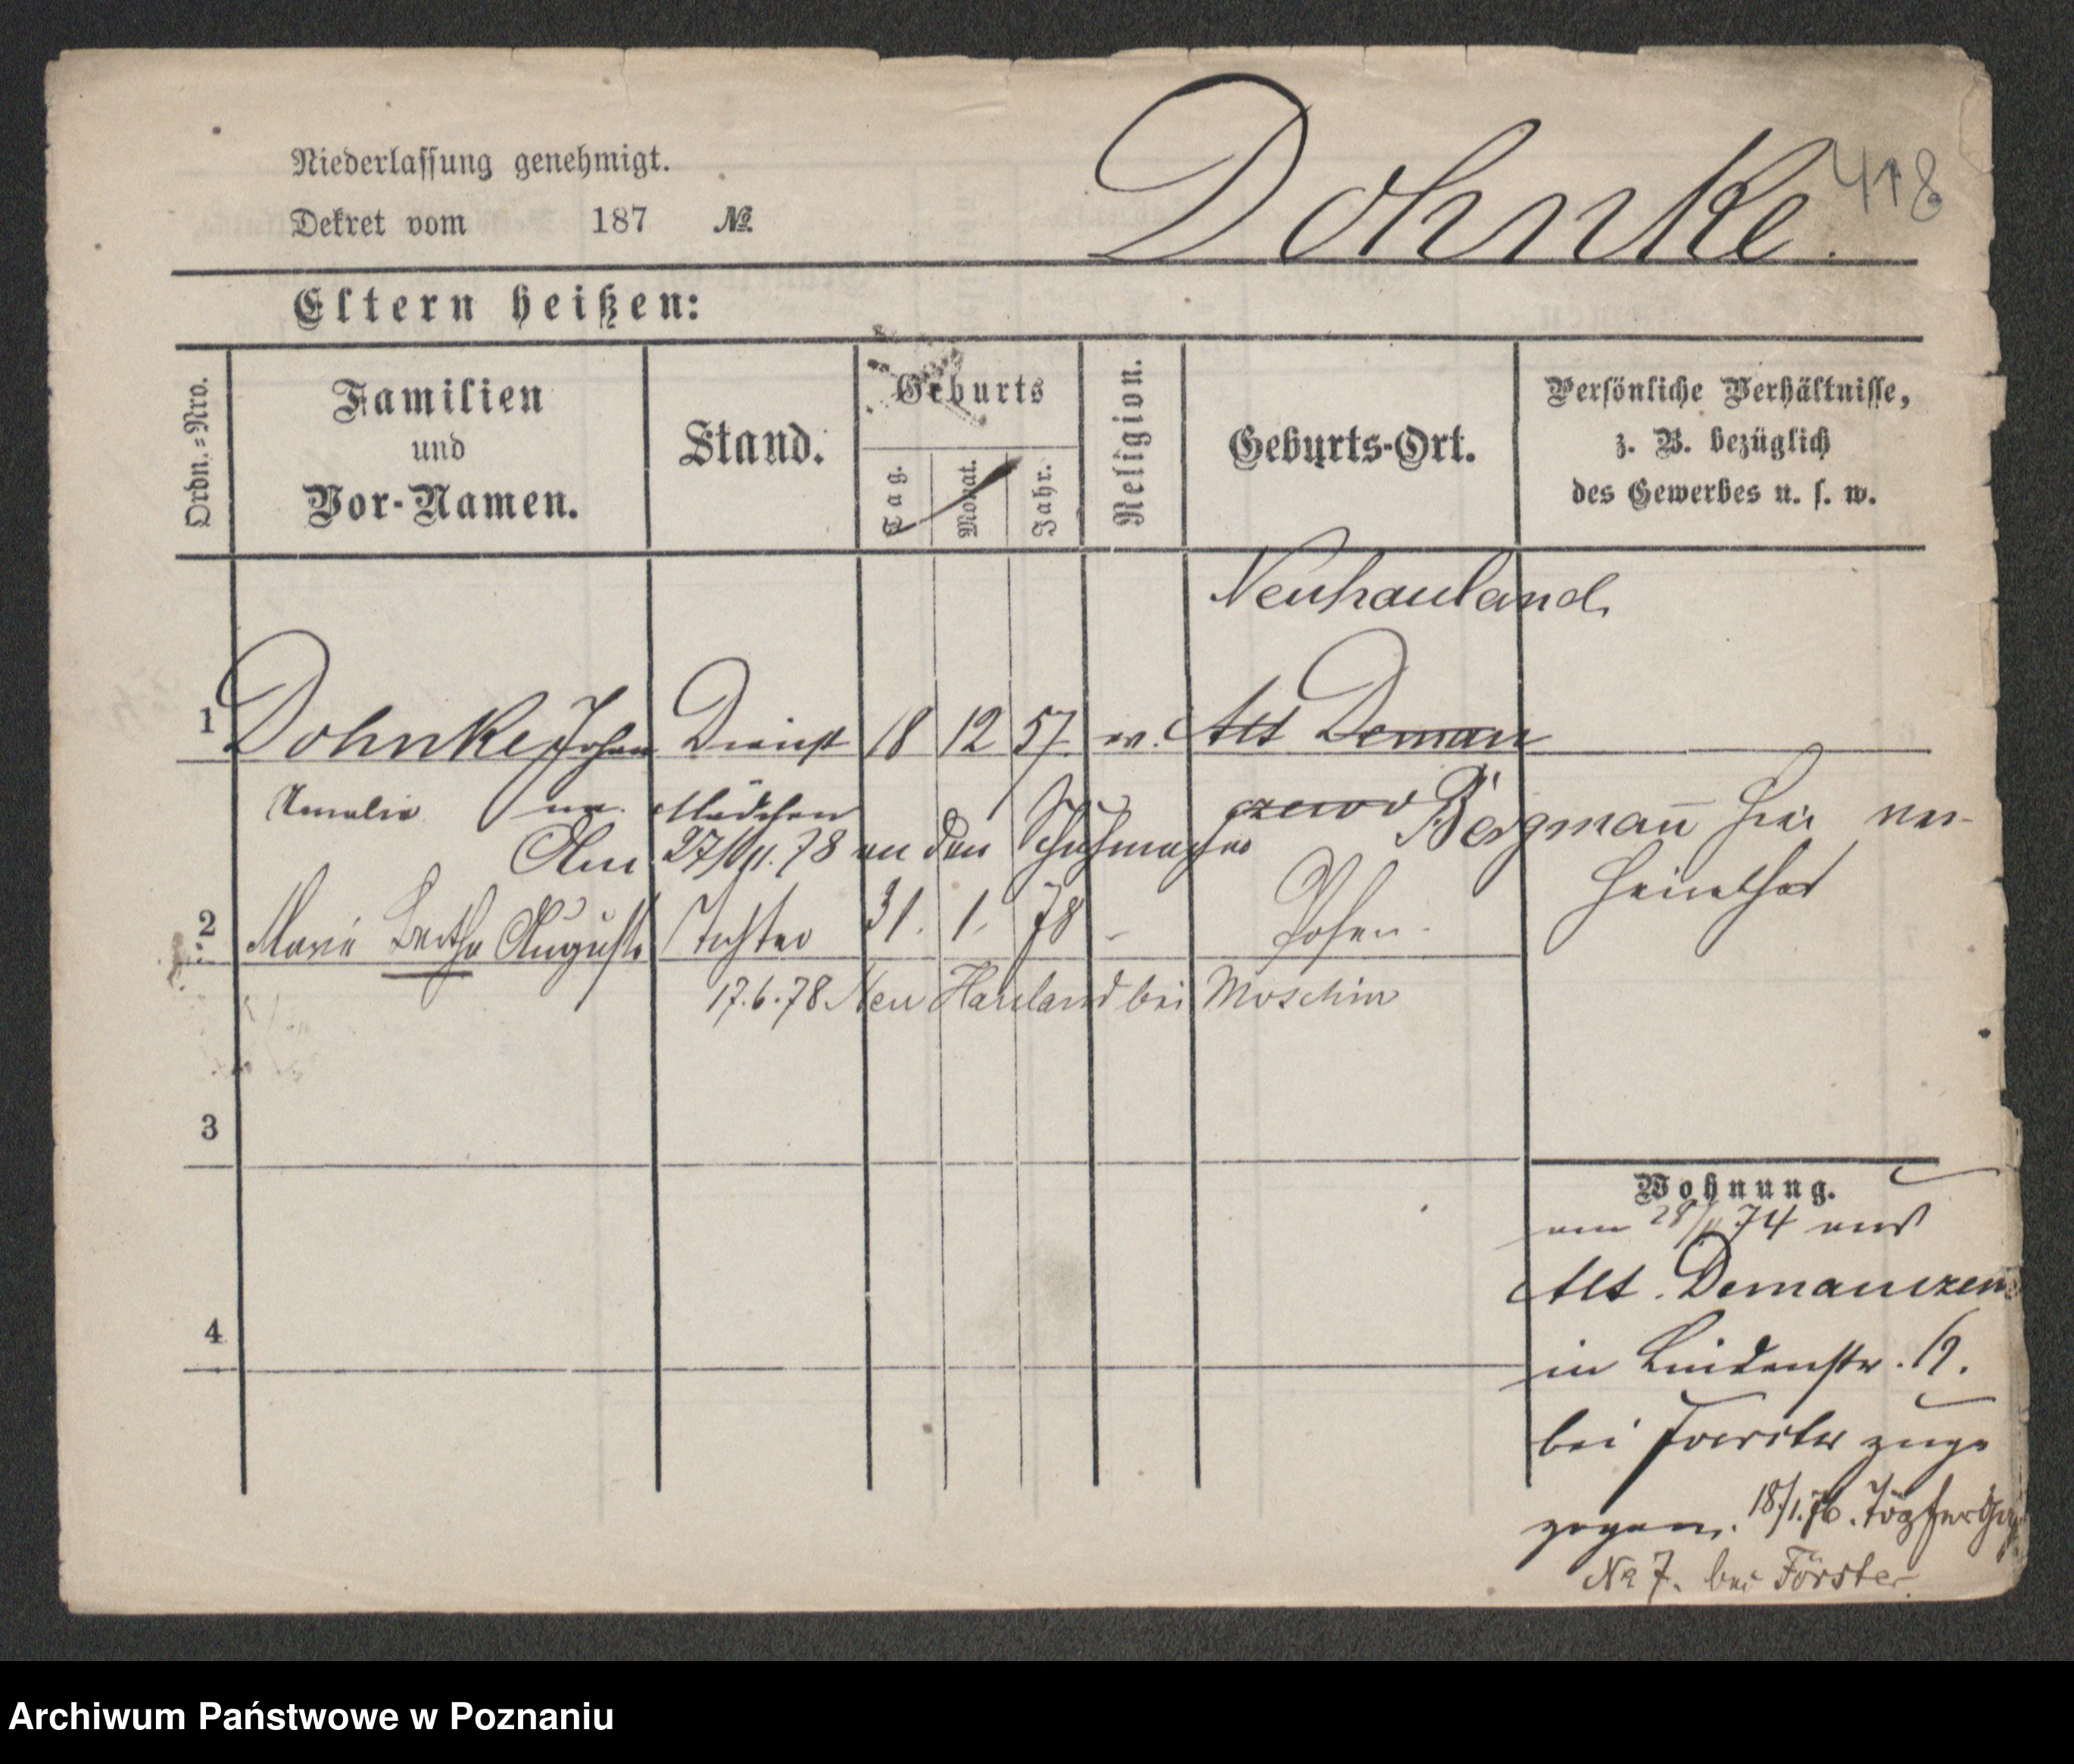 418
Niederlassung genehmigt.
Dekret vom 187 №
Dohnke.
Eltern heißen:
Ordn.=Nro.
Familien
und
Vor-Namen.
Stand.
Geburts
Tag.
Monat.
Jahr.
Religion.
Geburts-Ort.
Persönliche Verhältnisse,
z. B. bezüglich
des Gewerbes u. s. w.
Neuhauland
1 Dohnke, Johan Dienst 18 12 57 ev. Alt Deman
Amalia na Mädchen czewo
Am 27/11.78 an den Schuhmacher Bergman̄ hier ver-
heirathet
2 Marie Bertha Auguste Tochter 31. 1. 78 – Posen.
17.6.78 Neu Hauland bei Moschin
3
4
Wohnung.
am 28/11 74 aus
Alt. Demanczewo
in Lindenstr.
bei Foerster zuge
zogen. 18/1.76. Töpferg
№ 7. bei Förster.
Archiwum Państwowe w Poznaniu